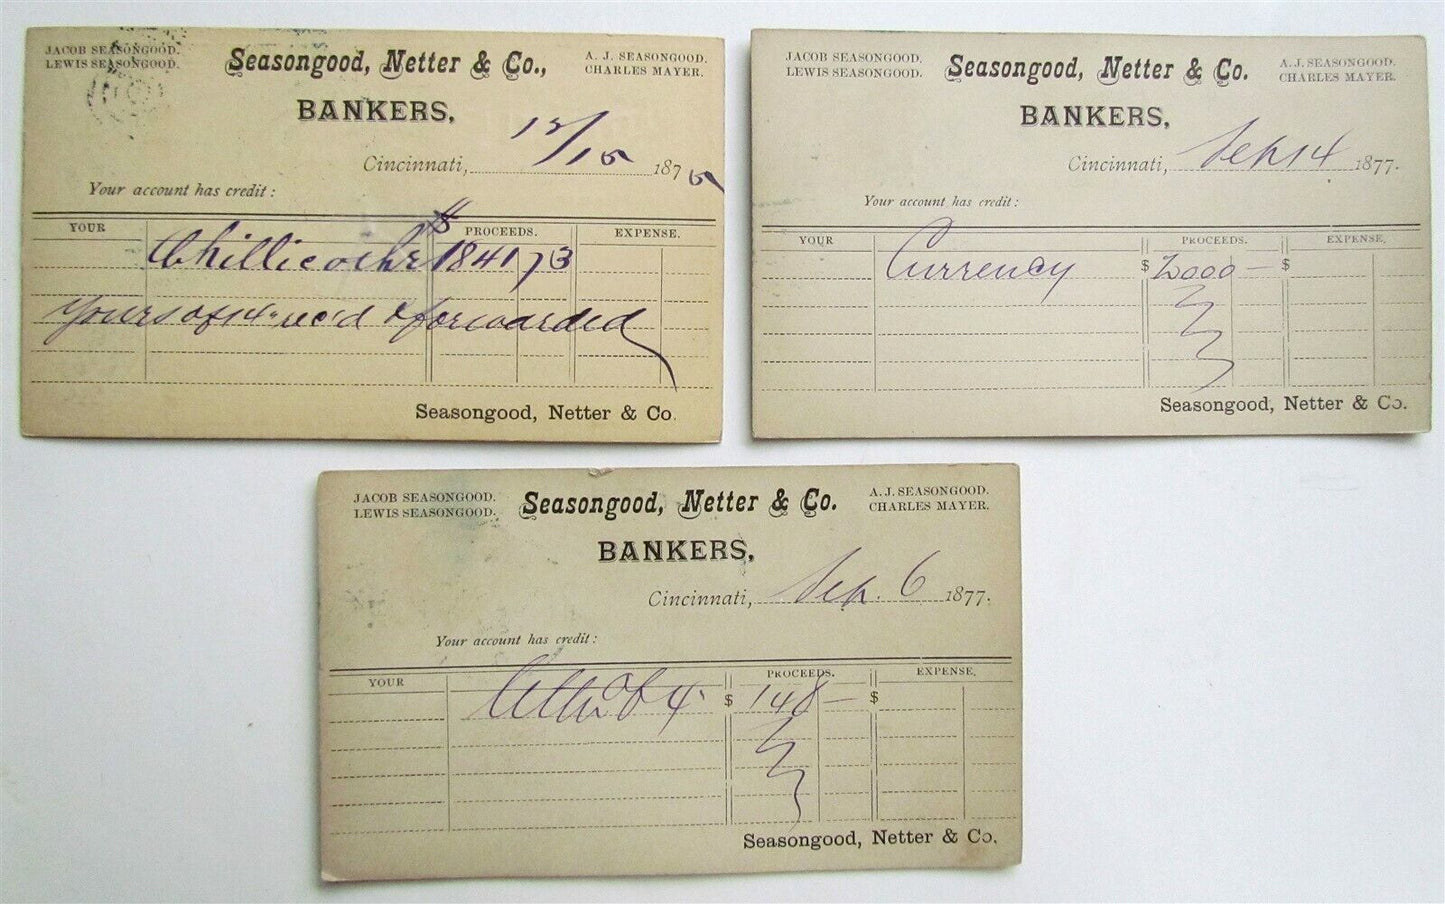 JACOB SEASONGOOD.
LEWIS SEASONGOOD.
Seasongood, Netter & Co.,
A. J. SEASONGOOD.
CHARLES MAYER.
BANKERS,
Cincinnati, 12/15 1875
Your account has credit:
YOUR PROCEEDS. EXPENSE.
Chillicothe $ 1841 73
Yours of 14" rec'd & forwarded
Seasongood, Netter & Co.
JACOB SEASONGOOD.
LEWIS SEASONGOOD.
Seasongood, Netter & Co.
A. J. SEASONGOOD.
CHARLES MAYER.
BANKERS,
Cincinnati, Sep 14 1877.
Your account has credit:
YOUR PROCEEDS. EXPENSE.
Currency $ 2000 — $
Seasongood, Netter & Co.
JACOB SEASONGOOD.
LEWIS SEASONGOOD.
Seasongood, Netter & Co.
A. J. SEASONGOOD.
CHARLES MAYER.
BANKERS,
Cincinnati, Sep. 6 1877.
Your account has credit:
YOUR PROCEEDS. EXPENSE.
of 4" $ 148 — $
Seasongood, Netter & Co.